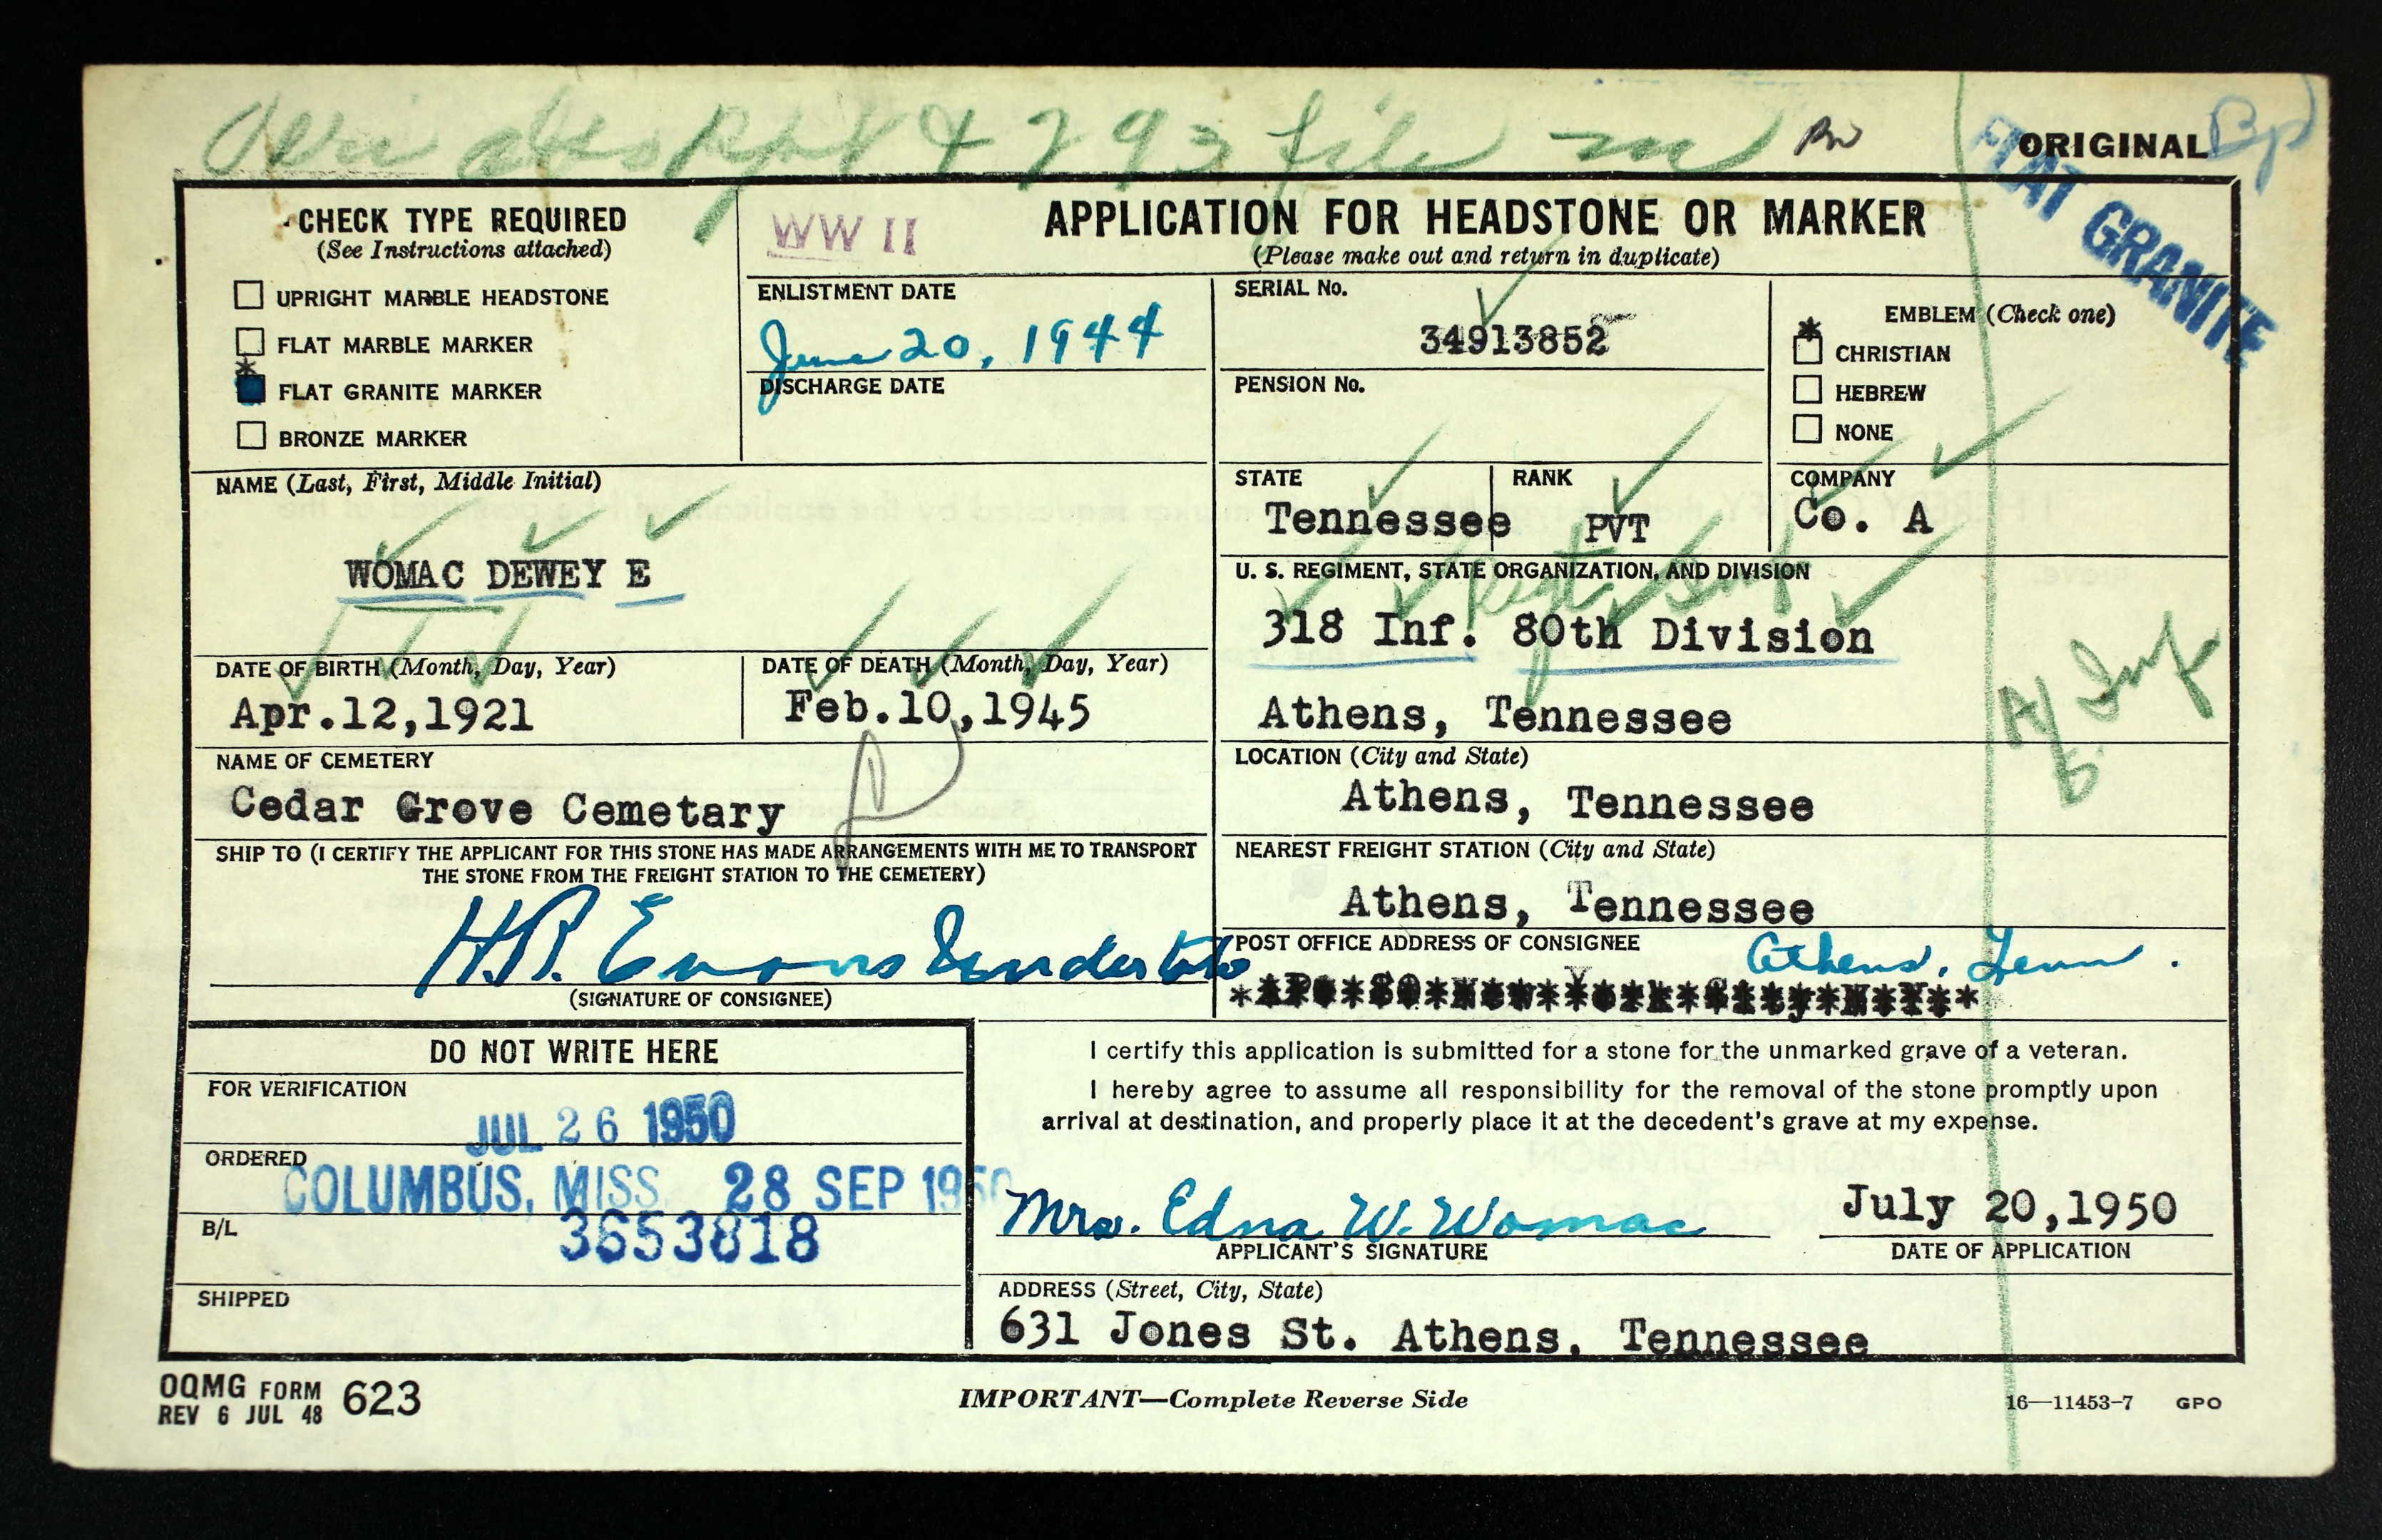 4293 file
ORIGINAL
FLAT GRANITE
CHECK TYPE REQUIRED
(See Instructions attached)
UPRIGHT MARBLE HEADSTONE
FLAT MARBLE MARKER
*
FLAT GRANITE MARKER
BRONZE MARKER
WW II
APPLICATION FOR HEADSTONE OR MARKER
(Please make out and return in duplicate)
ENLISTMENT DATE
June 20, 1944
DISCHARGE DATE
SERIAL No.
34913852
PENSION No.
EMBLEM (Check one)
*
CHRISTIAN
HEBREW
NONE
NAME (Last, First, Middle Initial)
WOMAC DEWEY E
STATE
Tennessee
RANK
PVT
COMPANY
Co. A
U. S. REGIMENT, STATE ORGANIZATION, AND DIVISION
318 Inf. 80th Division
Athens, Tennessee
A/ Inf
DATE OF BIRTH (Month, Day, Year)
Apr.12,1921
DATE OF DEATH (Month, Day, Year)
Feb.10,1945
NAME OF CEMETERY
Cedar Grove Cemetary
LOCATION (City and State)
Athens, Tennessee
SHIP TO (I CERTIFY THE APPLICANT FOR THIS STONE HAS MADE ARRANGEMENTS WITH ME TO TRANSPORT
THE STONE FROM THE FREIGHT STATION TO THE CEMETERY)
H.R. Evans
(SIGNATURE OF CONSIGNEE)
NEAREST FREIGHT STATION (City and State)
Athens, Tennessee
POST OFFICE ADDRESS OF CONSIGNEE
Athens, Tenn.
DO NOT WRITE HERE
FOR VERIFICATION
JUL 26 1950
ORDERED
COLUMBUS, MISS. 28 SEP 1950
B/L
3653818
SHIPPED
I certify this application is submitted for a stone for the unmarked grave of a veteran.
I hereby agree to assume all responsibility for the removal of the stone promptly upon
arrival at destination, and properly place it at the decedent's grave at my expense.
Mrs. Edna W. Womac
APPLICANT'S SIGNATURE
July 20,1950
DATE OF APPLICATION
ADDRESS (Street, City, State)
631 Jones St. Athens, Tennessee
OQMG FORM 623
REV 6 JUL 48
IMPORTANT—Complete Reverse Side
16—11453-7 GPO